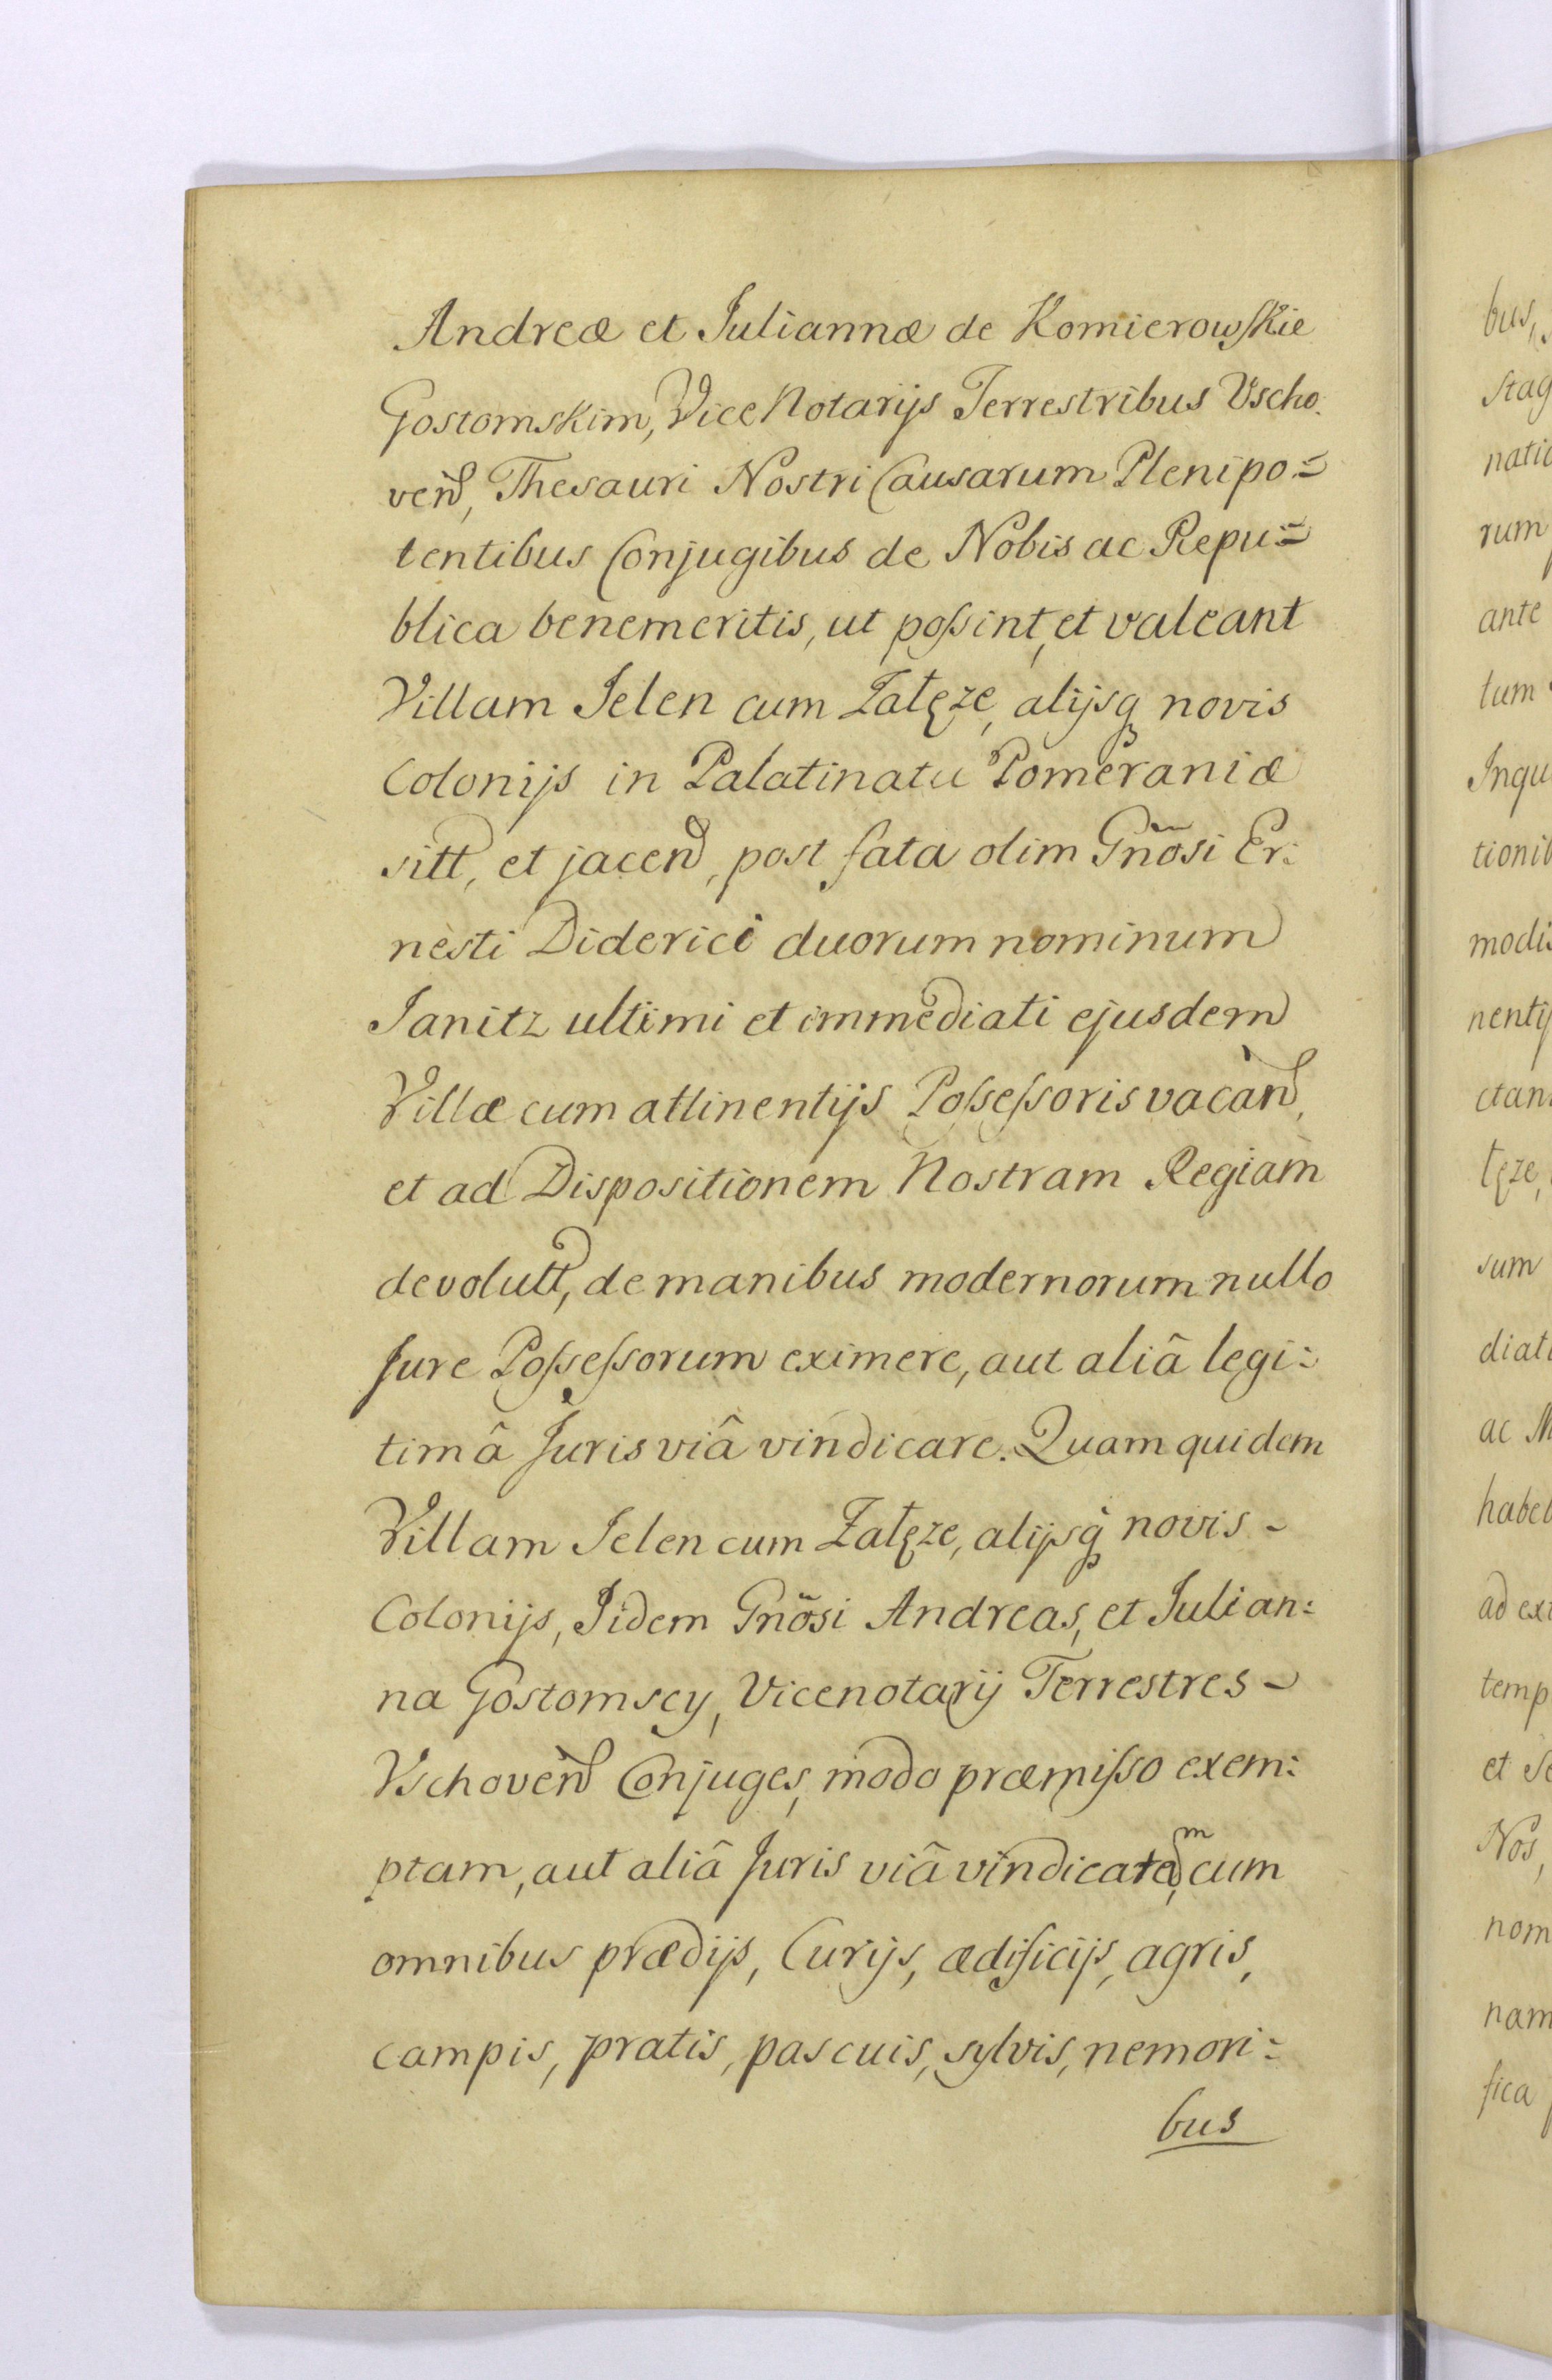 Andreæ et Juliannæ de Komierowskie
Gostomskim, Vice Notarijs Terrestribus Vscho:
ven̄, Thesauri Nostri Causarum Plenipo=
tentibus Conjugibus de Nobis ac Repu=
blica benemeritis, ut poſsint, et valeant
Villam Jelen cum Załęze, alijsq novis
Colonijs in Palatinatu Pomeraniæ
sitt, et jacen̄, post fata olim Gn̄osi Er:
nesti Diderici duorum nominum
Janitz ultimi et immediati ejusdem
Villæ cum attinentijs Poſseſsoris vacan̄,
et ad Dispositionem Nostram Regiam
devolutt, de manibus modernorum nullo
Jure Poſseſsorum eximere, aut aliâ legi:
timâ Juris viâ vindicare. Quam quidem
Villam Jelen cum Załęze, alijsq novis -
Colonijs, Jidem Gn̄osi Andreas, et Julian:
na Gostomscy, Vicenotarij Terrestres -
Vschoven̄ Conjuges, modo præmiſso exem:
ptam, aut aliâ Juris viâ vindicatam, cum
omnibus prædijs, Curijs, ædificijs, agris,
campis, pratis, pascuis, sylvis, nemori:
bus
bus,
stag
natio
rum
ante
tum
Inqu
tionib
modis
nentij
ctan
łęze,
sum
diati
ac M
habeb
ad exi
temp
et Se
Nos,
nom
nam
fica